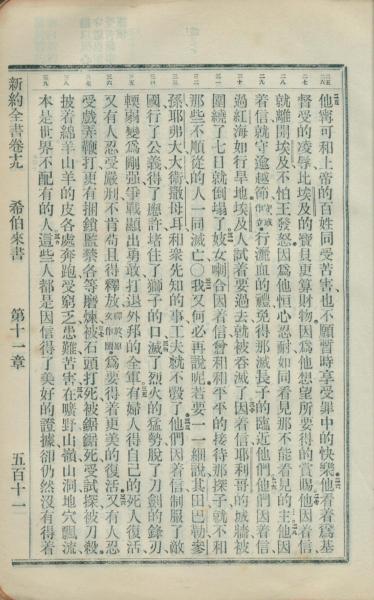 他寧可和上帝的百姓同受苦害也不願暫時享受罪中的快樂他看着爲基
督受的凌辱比埃及的寶貝更算財物因爲他想望所要得的賞賜他因着信
就離開埃及不怕王發怒因爲他恒心忍耐如同看見那不能看見的主他因
着信就守逾越節行灑血的禮免得那滅長子的臨近他們他們因着信
過紅海如行旱地埃及人試着要過去就被吞滅了因着信耶利哥的城牆被
圍繞了七日就倒塌了妓女喇合因着信曾和和平平的接待那探子就不和
那些不順從的人一同滅亡○我又何必再說呢若要一一細說其田巴勒參
孫耶弗大大衛撒母耳和衆先知的事工夫就不彀了他們因着信制服了敵
國行了公義得了應許堵住了獅子的口滅了烈火的猛勢脫了刀劍的鋒刃
輭弱變爲剛强爭戰顯出勇敢打退外邦的全軍有婦人得自己的死人復活
又有人忍受嚴刑不肯苟且得釋放爲要得着更美的復活又有人忍
受戲弄鞭打更有捆鎖監禁各等磨煉被石頭打死被鋸鋸死受試探被刀殺
披着綿羊山羊的皮各處奔跑受窮乏患難苦害在曠野山嶺山洞地穴飄流
本是世界不配有的人這些人都是因信得了美好的證據却仍然沒有得着
新約全書卷十九 希伯來書 第十一章 五百十一